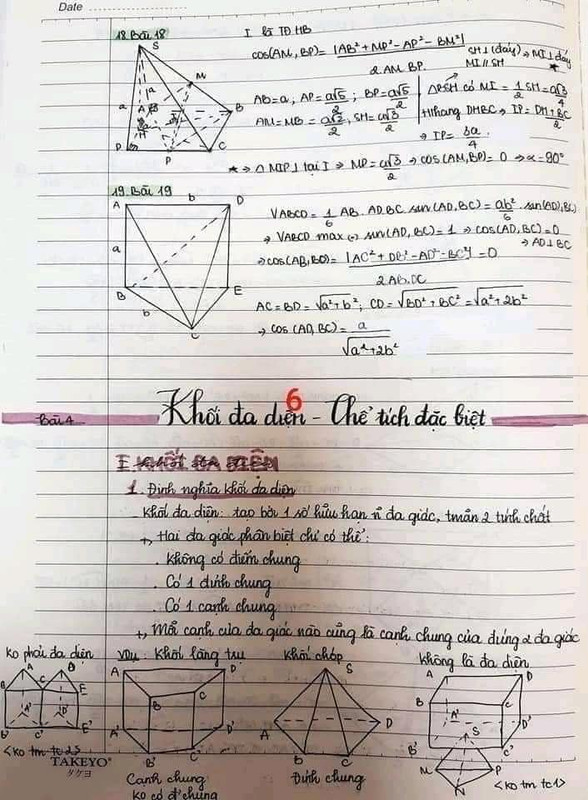 Date
18. Bài 18
I là TĐ HB
cos(AM, BP) = |AB² + MP² - AP² - BM²| / 2 AM. BP
SH ⊥ (đáy) → MI ⊥ đáy
MI // SH
AB = a, AP = a√5/2 ; BP = a√5/2
ΔBSH có MI = 1/2 SH = a√3/4
SH = a√3/2
→ IP = 3a/4
→ cos(AM, BP) = 0 → α = 90°
19. Bài 19
VABCD = 1/6 AB. AD. BC. sin(AD, BC) = ab²/6 . sin(AD, BC)
→ VABCD max ⇔ sin(AD, BC) = 1 → cos(AD, BC) = 0
→ AD ⊥ BC
2AB. DC
AC = BD = √a² + b² ; CD = √BD² + BC² = √a² + 2b²
→ cos (AD, BC) = a / √a² + 2b²
6
Bài 4
Khối đa diện - Thể tích đặc biệt
I KHỐI ĐA DIỆN
1. Định nghĩa khối đa diện
Khối đa diện: tạo bởi 1 số hữu hạn n đa giác, tmãn 2 tính chất
+, Hai đa giác phân biệt chỉ có thể:
. Không có điểm chung
. Có 1 đỉnh chung
. Có 1 cạnh chung
+, Mỗi cạnh của đa giác nào cũng là cạnh chung của đúng 2 đa giác
Ko phải đa diện
VDụ: Khối lăng trụ
Khối chóp
Không là đa diện
<ko tm tc2>
TAKEYO®
タケヨ
Cạnh chung
Ko có đ' chung
Đỉnh chung
<ko tm tc1>